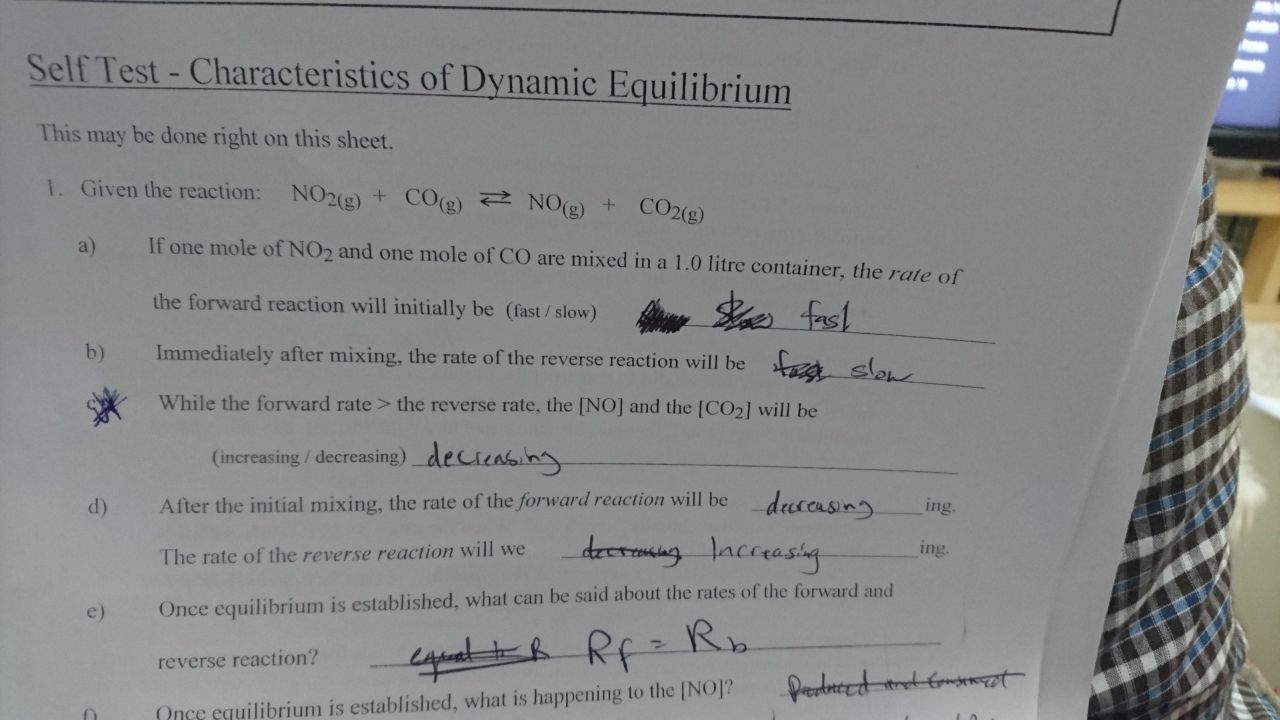 Self Test - Characteristics of Dynamic Equilibrium
This may be done right on this sheet.
1. Given the reaction: NO2(g) + CO(g) ⇄ NO(g) + CO2(g)
a) If one mole of NO2 and one mole of CO are mixed in a 1.0 litre container, the rate of
the forward reaction will initially be (fast / slow) slow fast
b) Immediately after mixing, the rate of the reverse reaction will be fast slow
c) While the forward rate > the reverse rate, the [NO] and the [CO2] will be
(increasing / decreasing) decreasing
d) After the initial mixing, the rate of the forward reaction will be decreasing ing.
The rate of the reverse reaction will we decreasing Increasing ing.
e) Once equilibrium is established, what can be said about the rates of the forward and
reverse reaction? equal to R Rf = Rb
f) Once equilibrium is established, what is happening to the [NO]? Produced and consumed